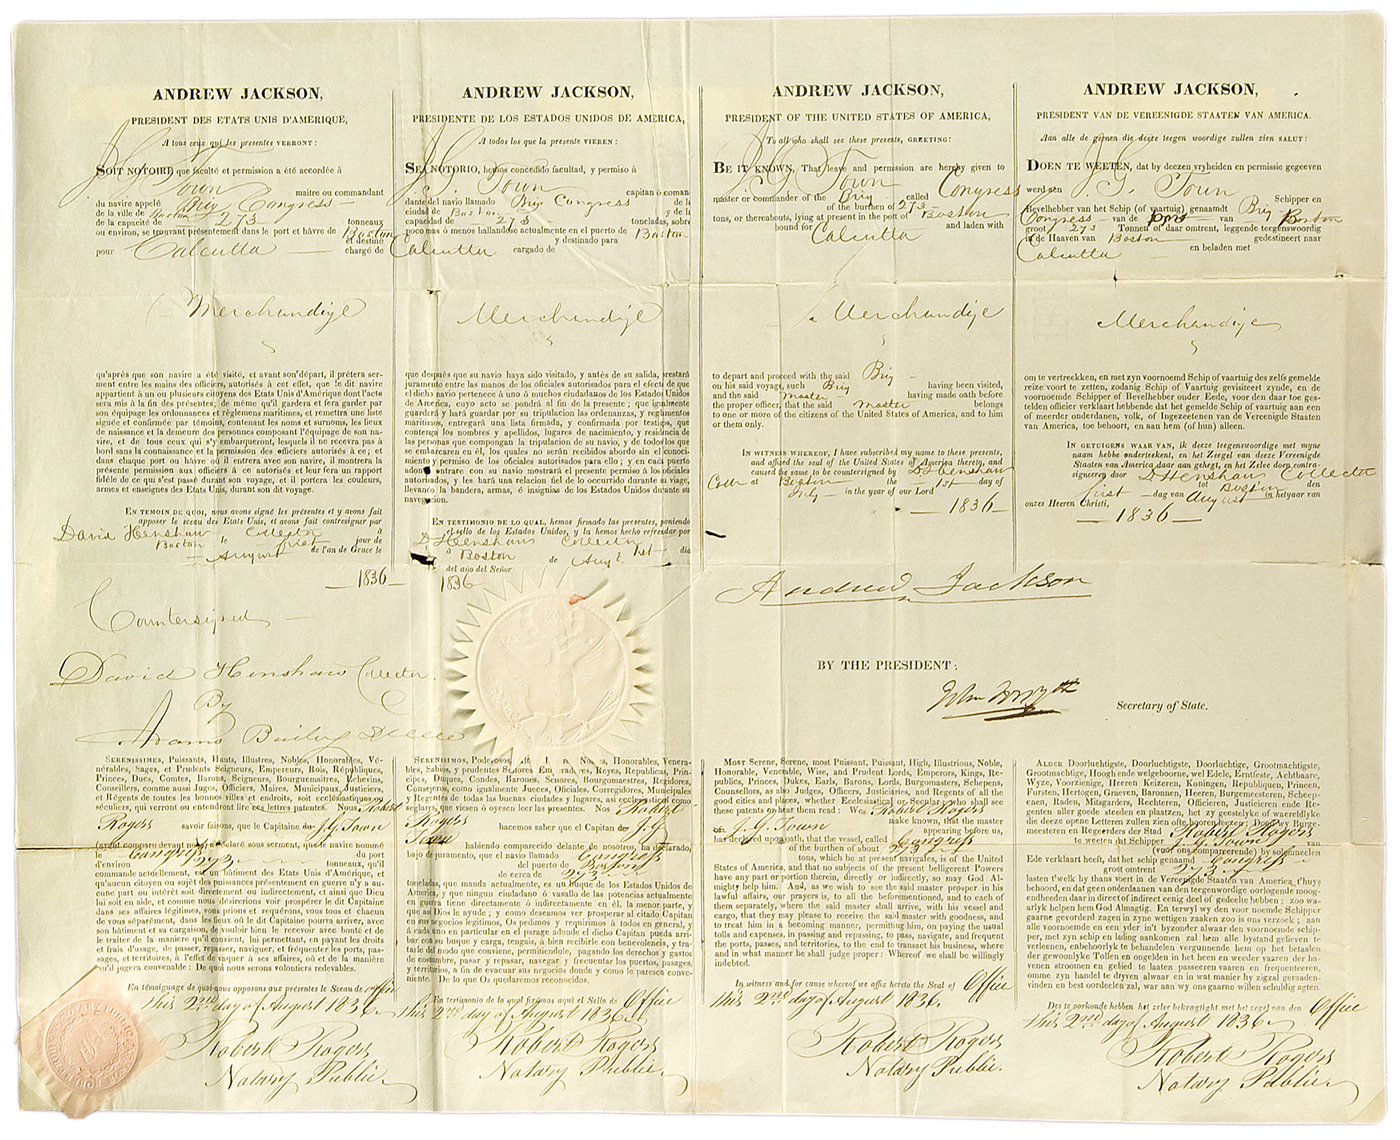 ANDREW JACKSON,
PRESIDENT DES ETATS UNIS D'AMERIQUE,
A tous ceux qui les presentes VERRONT:
SOIT NOTOIRE que faculté et permission a été accordée à
J. G. Town maitre ou commandant
du navire appelé Brig Congress
de la ville de Boston
de la capacité de 273 tonneaux
ou environ, se trouvant présentement dans le port et hâvre de Boston
et destiné
pour Calcutta chargé de
Merchandize
qu'après que son navire a été visité, et avant son départ, il prêtera ser-
ment entre les mains des officiers, autorisés à cet effet, que le dit navire
appartient à un ou plusieurs citoyens des Etats Unis d'Amérique dont l'acte
sera mis à la fin des présentes; de même qu'il gardera et fera garder par
son équipage les ordonnances et règlemens maritimes, et remettra une liste
signée et confirmée par témoins, contenant les noms et surnoms, les lieux
de naissance et la demeure des personnes composant l'équipage de son na-
vire, et de tous ceux qui s'y embarqueront, lesquels il ne recevra pas à
bord sans la connaissance et la permission des officiers autorisés à ce; et
dans chaque port ou hâvre où il entrera avec son navire, il montrera la
présente permission aux officiers à ce autorisés et leur fera un rapport
fidèle de ce qui s'est passé durant son voyage, et il portera les couleurs,
armes et enseignes des Etats Unis, durant son dit voyage.
EN TEMOIN DE QUOI, nous avons signé les présentes et y avons fait
apposer le sceau des Etats Unis, et avons fait contresigner par
David Henshaw Collector à
Boston le first jour de
August de l'an de Grace le
1836
Countersigned
David Henshaw Collector.
By
Adams Bailey
ANDREW JACKSON,
PRESIDENTE DE LOS ESTADOS UNIDOS DE AMERICA,
A todos los que la presente VIEREN:
SEA NOTORIO, que hemos concedido facultad, y permiso à
J. G. Town capitan ò coman-
dante del navio llamado Brig Congress de la
ciudad de Boston y de la
capacidad de 273 toneladas, sobre
poco mas ó menos hallandose actualmente en el puerto de Boston
y destinado para
Calcutta cargado de
Merchandize
que despues que su navio haya sido visitado, y antes de su salida, prestará
juramento entre las manos de los oficiales autorisados para el efecto de que
el dicho navio pertenece à uno ó muchos ciudadanos de los Estados Unidos
de America, cuyo acto se pondrá al fin de la presente; y que igualmente
guardará y hará guardar por su tripulacion las ordenanzas, y reglamentos
maritimos, entregará una lista firmada, y confirmada por testigos, que
contenga los nombres y apelidos, lugares de nacimiento, y residencia de
las personas que compongan la tripulacion de su navio, y de todos los que
se embarcaren en él, los quales no serán recibidos abordo sin el conoci-
miento y permiso de los oficiales autorisados para ello; y en cada puerto
adonde entrare con su navio mostrará el presente permiso à los oficiales
autorisados, y les hará una relacion fiel de lo occurido durante su viage,
llevando la bandera, armas, é insignias de los Estados Unidos durante su
navegacion.
EN TESTIMONIO DE LO QUAL, hemos firmado las presentes, poniendo
el sello de los Estados Unidos, y la hemos hecho refrendar por
D Henshaw Collector
à Boston 1st dia
de Augt
del año del Señor
1836
ANDREW JACKSON,
PRESIDENT OF THE UNITED STATES OF AMERICA,
To all who shall see these presents, GREETING:
BE IT KNOWN, That leave and permission are hereby given to
J. G. Town
master or commander of the Brig called Congress
of the burthen of 273
tons, or thereabouts, lying at present in the port of Boston
bound for Calcutta and laden with
Merchandize
to depart and proceed with the said Brig
on his said voyage, such Brig having been visited,
and the said master having made oath before
the proper officer, that the said master belongs
to one or more of the citizens of the United States of America, and to him
or them only.
IN WITNESS WHEREOF, I have subscribed my name to these presents,
and affixed the seal of the United States of America thereto, and
caused the same to be countersigned by D. Henshaw
Coll. at Boston the 1st day of
in the year of our Lord
1836
Andrew Jackson
BY THE PRESIDENT:
John Forsyth
Secretary of State.
ANDREW JACKSON,
PRESIDENT VAN DE VEREENIGDE STAATEN VAN AMERICA.
Aan alle de genen die deeze tegen woordige zullen zien SALUT:
DOEN TE WEETEN, dat by deezen vryheiden en permissie gegeeven
werd aan J. G. Town Schipper en
Bevelhebber van het Schip (of vaartuig) genaamdt Brig
Congress van de van Boston
groot 273 Tonnen of daar omtrent, leggende teegenswoordig
in de Haaven van Boston gedestineert naar
Calcutta en beladen met
Merchandize
om te vertreekken, en met zyn voornoemd Schip of vaartuig des zelfs gemelde
reize voort te zetten, zodanig Schip of Vaartuig gevisiteert zynde, en de
voornoemde Schipper of Bevelhebber onder Eede, voor den daar toe ges-
telden officier verklaart hebbende dat het gemelde Schip of vaartuig aan een
of meerder onderdanen, volk, of Ingezeetenen van de Vereenigde Staaten
van America, toe behoort, en aan hem (of hun) alleen.
IN GETUIGENS WAAR VAN, ik deeze teegenswoordige met myne
naam hebbe onderteekent, en het Zeegel van deeze Vereenigde
Staaten van America daar aan gehegt, en het Zelve doen contra-
signeeren door D Henshaw Collector
tot Boston den
first dag van August in het yaar van
onzes Heeren Christi,
1836
SERENISSIMES, Puissants, Hauts, Illustres, Nobles, Honorables, Vé-
nérables, Sages, et Prudents Seigneurs, Empereurs, Rois, Républiques,
Princes, Ducs, Comtes, Barons, Seigneurs, Bourguemaitres, Echevins,
Conseillers, comme aussi Juges, Officiers, Maires, Municipaux, Justiciers,
et Régents de toutes les bonnes villes et endroits, soit ecclésiastiques ou
séculiers, qui verront ou entendront lire ces lettres patentes. Nous Robert
Rogers savoir faisons, que le Capitaine de J. G. Town
ayant comparu devant nous a déclaré sous serment, que le navire nommé
le Congress du port
d'environ 273 tonneaux, qu'il
commande actuellement, est un bâtiment des Etats Unis d'Amérique, et
qu'aucun citoyen ou sujet des puissances présentement en guerre n'y a au-
cune part ou intérêt directement ni indirectement, ainsi que Dieu veuille
lui soit en aide, et comme nous désirerions voir prospérer le dit Capitaine
dans ses affaires légitimes, vous prions et requérons, vous tous et chacun
de vous séparément, dans les lieux où le dit Capitaine pourra arriver, avec
son bâtiment et sa cargaison, de vouloir bien le recevoir avec bonté et de
le traiter de la manière qu'il convient, lui permettant, en payant les droits
et frais d'usage, de passer, repasser, naviguer, et fréquenter les ports, pas-
sages, et territoires, à l'effet de vaquer à ses affaires, où et de la manière
qu'il jugera convenable: De quoi nous serons volontiers redevables.
En témoignage de quoi nous apposons aux présentes le Sceau de office
this 2nd day of August 1836.
Robert Rogers
Notary Public.
SERENISIMOS, Poderosos, Nobles, Honorables, Venera-
bles, Sabios, y prudentes Señores Emperadores, Reyes, Republicas, Prin-
cipes, Duques, Condes, Barones, Señores, Bourgomaestres, Regidores,
Consejeros, como igualmente Jueces, Oficiales, Corregidores, Municipales
y Regentes de todas las buenas ciudades y lugares, asi ecclesiasticos como
seglares, que vieren ó oyesen leer las presentes. Nos Robert
Rogers hacemos saber que el Capitan de J. G.
Town habiendo comparecido delante de nosotros, ha declarado,
bajo de juramento, que el navio llamado Congress
del puerto de Boston
de cerca de 273
toneladas, que manda actualmente, es un buque de los Estados Unidos de
America, y que ningun ciudadano ó vasallo de las potencias actualmente
en guerra tiene directamente ó indirectamente en él, la menor parte, y
que asi Dios le ayude; y como deseamos ver prosperar al citado Capitan
en sus negocios legitimos, Os pedimos y requirimos à todos en general, y
à cada uno en particular en el parage adonde el dicho Capitan pueda arri-
bar con su buque y carga, tengais, à bien recibirle con benevolencia, y tra-
tarle del modo que conviene, permitiendole, pagando los derechos y gastos
de costumbre, pasar y repasar, navegar y frecuentar los puertos, pasages,
y territorios, à fin de evacuar sus negocios donde y como le paresca conve-
niente. De lo que Os quedaremos reconocidos.
En testimonio de lo qual fixamos aqui el Sello de Office
this 2nd day of August 1836.
Robert Rogers
Notary Public.
MOST Serene, Serene, most Puissant, Puissant, High, Illustrious, Noble,
Honorable, Venerable, Wise, and Prudent Lords, Emperors, Kings, Re-
publics, Princes, Dukes, Earls, Barons, Lords, Burgomasters, Schepens,
Counsellors, as also Judges, Officers, Justiciaries, and Regents of all the
good cities and places, whether Ecclesiastical or Secular, who shall see
these patents or hear them read: We Robert Rogers
make known, that the master
of J. G. Town appearing before us,
has declared upon oath, that the vessel, called Congress
of the burthen of about 273
tons, which he at present navigates, is of the United
States of America, and that no subjects of the present belligerent Powers
have any part or portion therein, directly or indirectly, so may God Al-
mighty help him. And, as we wish to see the said master prosper in his
lawful affairs, our prayer is, to all the beforementioned, and to each of
them separately, where the said master shall arrive, with his vessel and
cargo, that they may please to receive the said master with goodness, and
to treat him in a becoming manner, permitting him, on paying the usual
tolls and expenses, in passing and repassing, to pass, navigate, and frequent
the ports, passes, and territories, to the end to transact his business, where
and in what manner he shall judge proper: Whereof we shall be willingly
indebted.
In witness and for cause whereof we affix hereto the Seal of Office
this 2nd day of August 1836.
Robert Rogers
Notary Public.
ALDER Doorluchtigste, Doorluchtigste, Doorluchtige, Grootmachtigste,
Grootmachtige, Hoogh ende welgeboorne, wel Edele, Erntfeste, Achtbaare,
Wyze, Voorzienige, Heeren Keizeren, Koningen, Republiquen, Princen,
Furaten, Hertogen, Graeven, Baronnen, Heeren, Burgemeesteren, Scheep-
enen, Raden, Mitsgarders, Rechteren, Officieren, Justicieren ende Re-
genten aller goede steeden en plaatzen, het zy geestelyke of waereldlyke
die deeze opene Letteren zullen zien ofte hooren leezen: Doen wy Burge-
meesteren en Regeerders der Stad Robert Rogers
te weeten dat Schipper J. G. Town van
(voor ons compareerende) by solemneelen
Ede verklaart heeft, dat het schip genaamd Congress
groot omtrent 273
lasten t'welk hy thans voert in de Vereenigde Staaten van America t'huys
behoord, en dat geen onderdaanen van den teegenwoordige oorlogende moog-
endheden daar in direct of indirect eenig deel of gedeelte hebben: zoo waar-
lyk helpen hem God Almagtig. En terwyl wy den voor noemde Schipper
gaarne gevorderd zagen in zyne wettigen zaaken zoo is ons verzoek; aan
alle voornoemde en een yder in't byzonder alwaar den voornoemde schip-
per, met zyn schip en lading aankomen zal hem alle bystand gelieven te
verleenen, enbehoorlyk te behandelen vergunnende hem op het betaalen
der gewoonlyke Tollen en ongelden in het heen en weeder vaaren der ha-
venen stroomen en gebied te laaten passeeren vaaren en frequenteeren,
omme zyn handel te dryven alwaar en in wat manier hy zig zal geraaden-
vinden en best oordeelen zal, war aan wy ons gaarne willen schuldig agten.
Des te oorkonde hebben het zelve bekragtight met het zegel van den Office
this 2nd day of August 1836.
Robert Rogers
Notary Public.